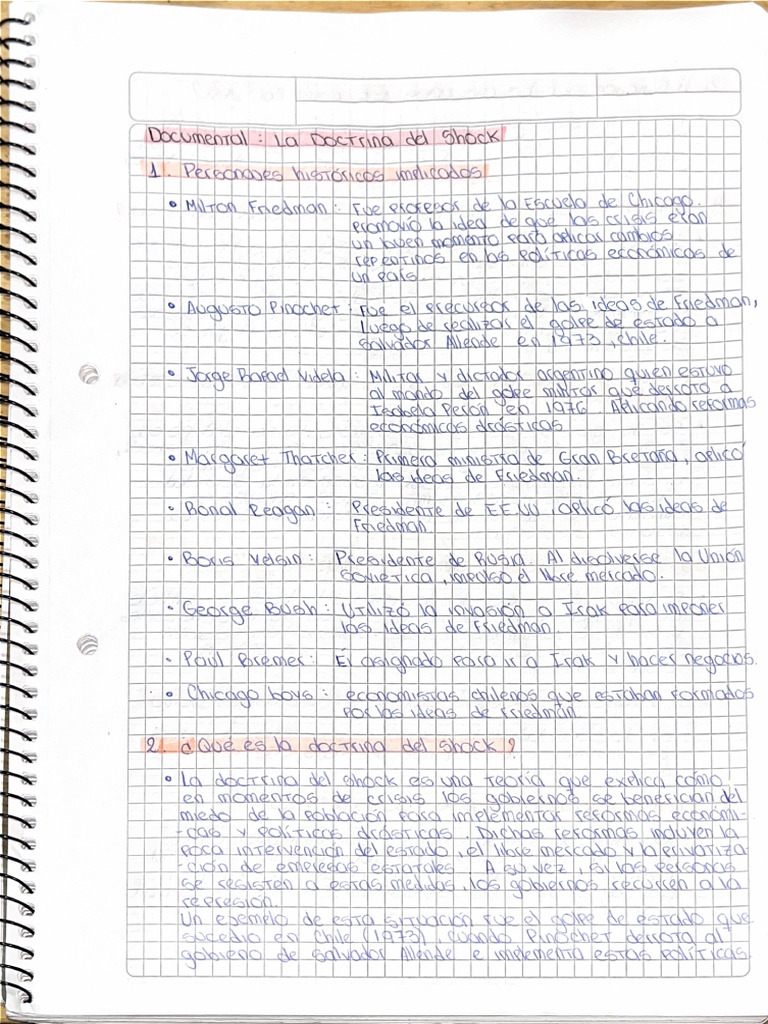 Documental: La Doctrina del Shock
1. Personajes históricos implicados
• Milton Friedman: Fue profesor de la Escuela de Chicago.
promovió la idea de que las crisis eran
un buen momento para aplicar cambios
repentinos en las políticas económicas de
un país.
• Augusto Pinochet: Fue el precursor de las ideas de Friedman,
Luego de realizar el golpe de estado a
Salvador Allende en 1973, Chile.
• Jorge Rafael Videla: Militar y dictador argentino quien estuvo
al mando del golpe militar que derrotó a
Isabela Perón en 1976. Aplicando reformas
económicas drásticas
• Margaret Thatcher: Primera ministra de Gran Bretaña, aplicó
las ideas de Friedman.
• Ronal Reagan: Presidente de EEUU, aplicó las ideas de
Friedman
• Boris Yelsin: Presidente de Rusia. Al disolverse la Unión
Soviética, impulso el libre mercado.
• George Bush: Utilizó la invasión a Irak para imponer
las ideas de Friedman.
• Paul Bremer: Él asignado para ir a Irak y hacer negocios.
• Chicago boys: economistas chilenos que estaban formados
por las ideas de Friedman
2. ¿Qué es la doctrina del shock?
• La doctrina del shock es una teoría que explica cómo,
en momentos de crisis los gobiernos se benefician del
miedo de la población para implementar reformas económi-
-cas y políticas drásticas. Dichas reformas incluyen la
poca intervención del estado, el libre mercado y la privatiza-
-ción de empresas estatales. A su vez, si las personas
se resisten a estas medidas, los gobiernos recurren a la
represión.
Un ejemplo de esta situación fue el golpe de estado que
sucedio en Chile (1973), cuando Pinochet derrota al
gobierno de Salvador Allende e implementa estas políticas.